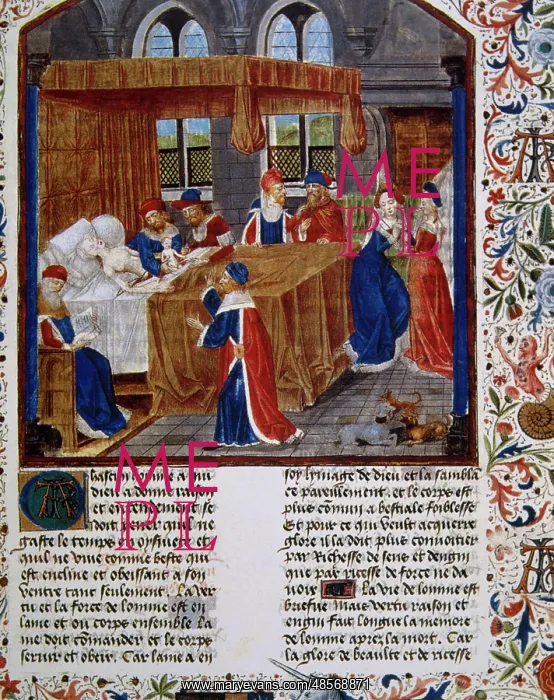 ME
PL
ME
PL
hascun
dieu a donne
et
doit
gaste le temps
quil ne vive comme beste qui
est encline et obeissant a son
ventre tant seulement. La ver
tu et la force de lomme est en
lame et ou corps ensemble la
me doit comander et le corps
servir et obeir. Car lame a en
soy lymage de dieu et la sambla
ce pareillement. et le corps est
plus
a bestiale foiblesse
Et pour ce qui veult acquerre
gloire il la doit plus convoitier
par Richesse de sens et dengin
que par ricesse de force ne da
voir
la vie de lomme est
briefve Mais vertu raison et
engin fait longue la memoire
de lomme aprez la mort. Car
la gloire de beaulte et de ricesse
www.maryevans.com/48568871